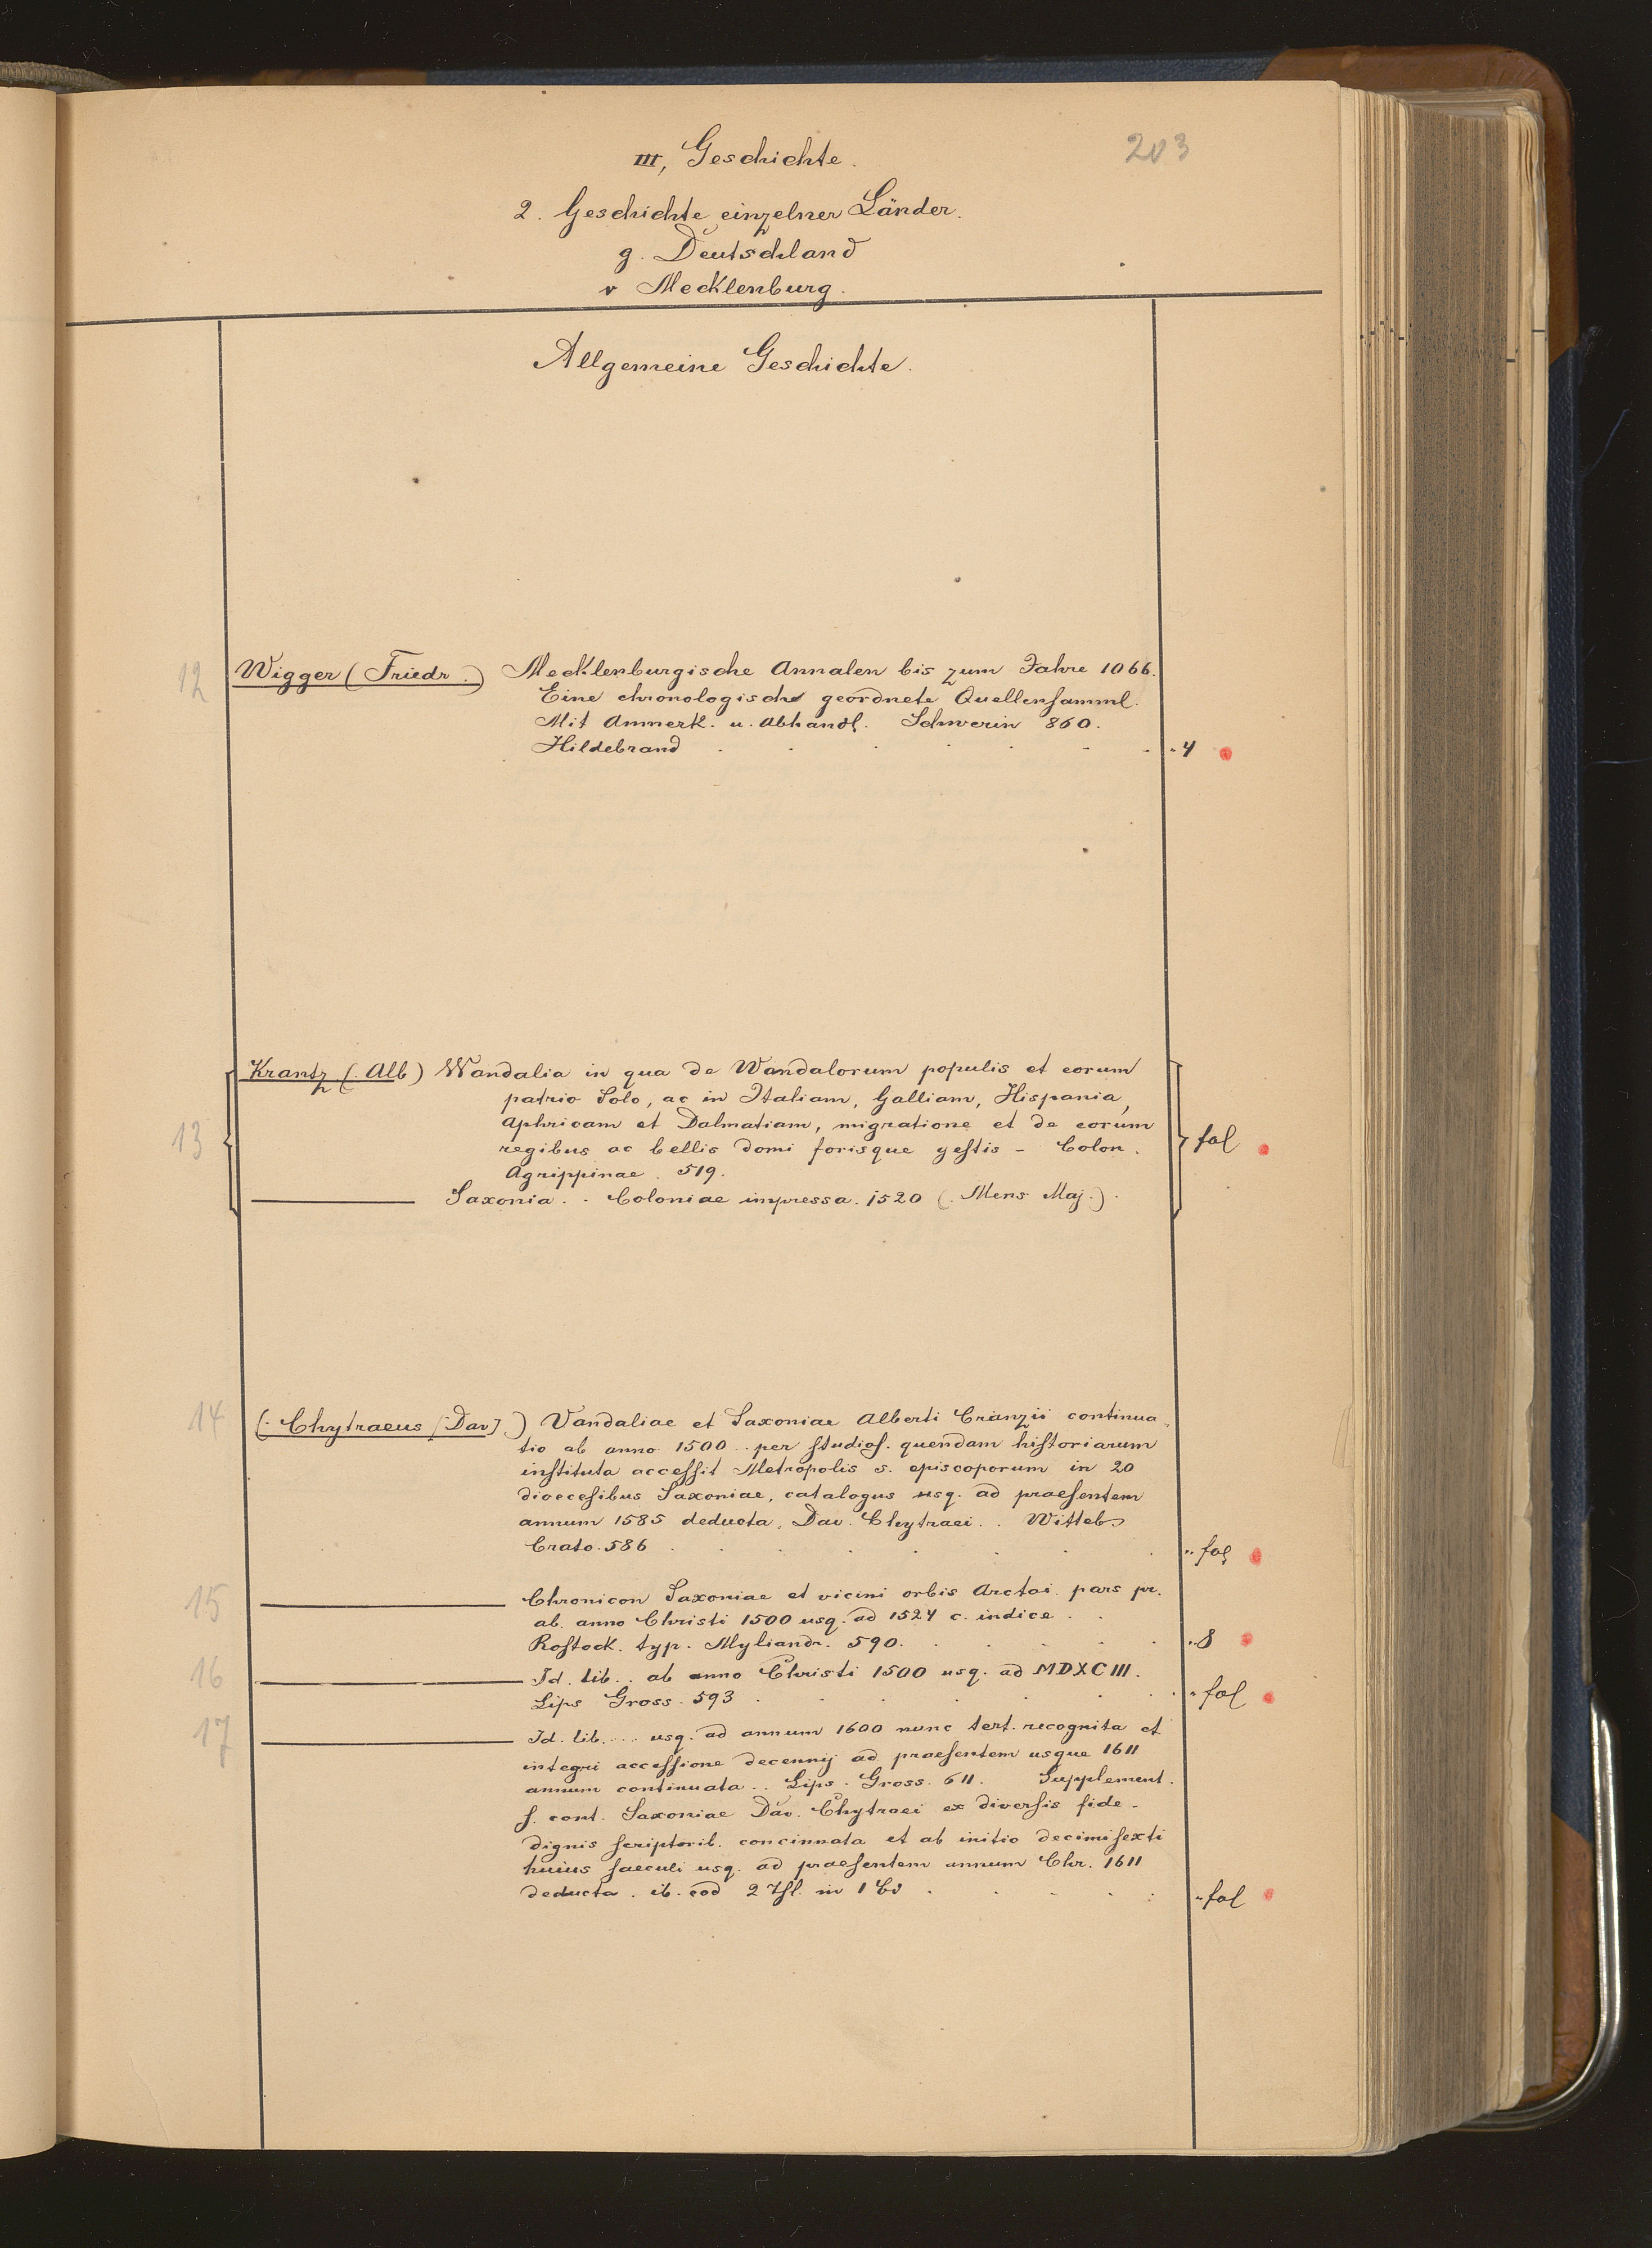 203
III, Geschichte.
2. Geschichte einzelner Länder.
g. Deutschland
v Mecklenburg.
Allgemeine Geschichte.
12 Wigger (Friedr.) Mecklenburgische Annalen bis zum Jahre 1066.
Eine chronologische geordnete Quellensamml.
Mit Anmerk. u. Abhandl. Schwerin 860.
Hildebrand . . . . . . . "4
Krantz (. Alb) Wandalia in qua de Wandalorum populis et eorum
patrio Solo, ac in Italiam, Galliam, Hispania,
Aphricam et Dalmatiam, migratione et de eorum
13 regibus ac bellis domi forisque gestis - Colon. fol
Agrippinae. 519.
Saxonia. . Coloniae impressa. 1520 (. Mens Maj.).
14 (. Chytraeus [Dav] .) Vandaliae et Saxoniae Alberti Cranzii continua
tio ab anno 1500 .. per studios. quendam historiarum
instituta accessit Metropolis s. episcoporum in 20
dioecesibus Saxoniae, catalogus usq. ad praesentem
annum 1585 deducta. Dav. Chytraei. . Witteb
Crato. 586 . . . . . . . " fol
15 Chronicon Saxoniae et vicini orbis Arctoi. pars pr.
ab. anno Christi 1500 usq. ad 1524 c. indice . .
Rostock. typ. Myliandr. 590. . . . . . "8
16 Id. lib. . ab anno Christi 1500 usq. ad MDXCIII.
Lips Gross. 593 . . . . . . . " fol
17 Id. lib. ... usq. ad annum 1600 nunc tert. recognita et
integri accessione decennij ad praesentem usque 1611
annum continuata . . Lips. Gross. 611. Supplement.
s. cont. Saxoniae Dav. Chytraei ex diversis fide-
dignis scriptorib. concinnata et ab initio decimisexti
huius saeculi usq. ad praesentem annum Chr. 1611
deducta. ib. eod 2 Thl. in 1 Bd . . . . . " fol